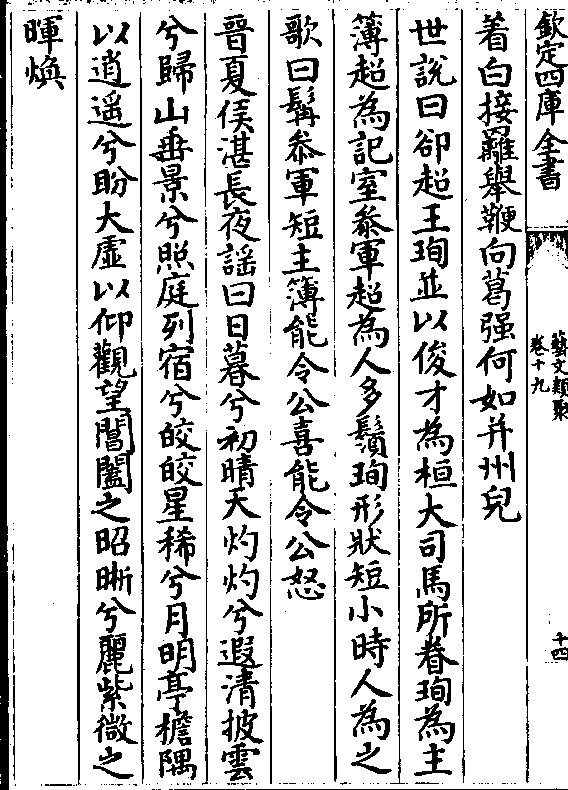 欽定四庫全書
藝文類聚
卷十九
十四
着白接䍦舉鞭向葛强何如并州兒
世說曰卻超王珣並以俊才為桓大司馬所眷珣為主
簿超為記室叅軍超為人多鬚珣形狀短小時人為之
歌曰髯叅軍短主簿能令公喜能令公怒
晉夏侯湛長夜謡曰日暮兮初晴天灼灼兮遐清披雲
兮歸山垂景兮照庭列宿兮皎皎星稀兮月明亭檐隅
以逍遥兮盼大虛以仰觀望閶闔之昭晰兮麗紫微之
暉煥